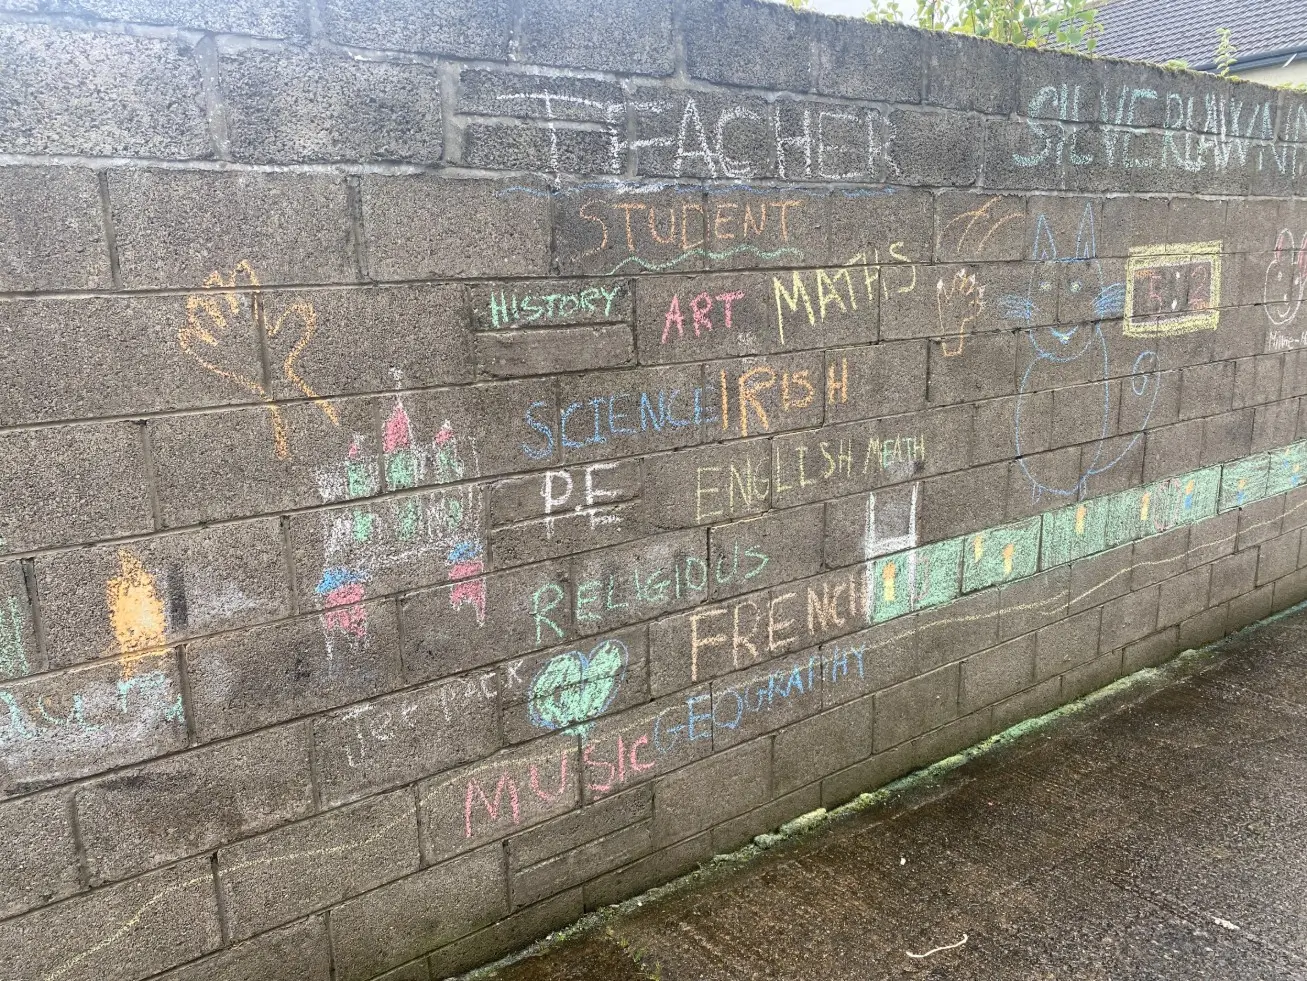 TEACHER
SILVERLAWN
STUDENT
HISTORY ART MATHS
SCIENCE IRISH
PE ENGLISH MEATH
RELIGIOUS
FRENCH
GEOGRAPHY
MUSIC